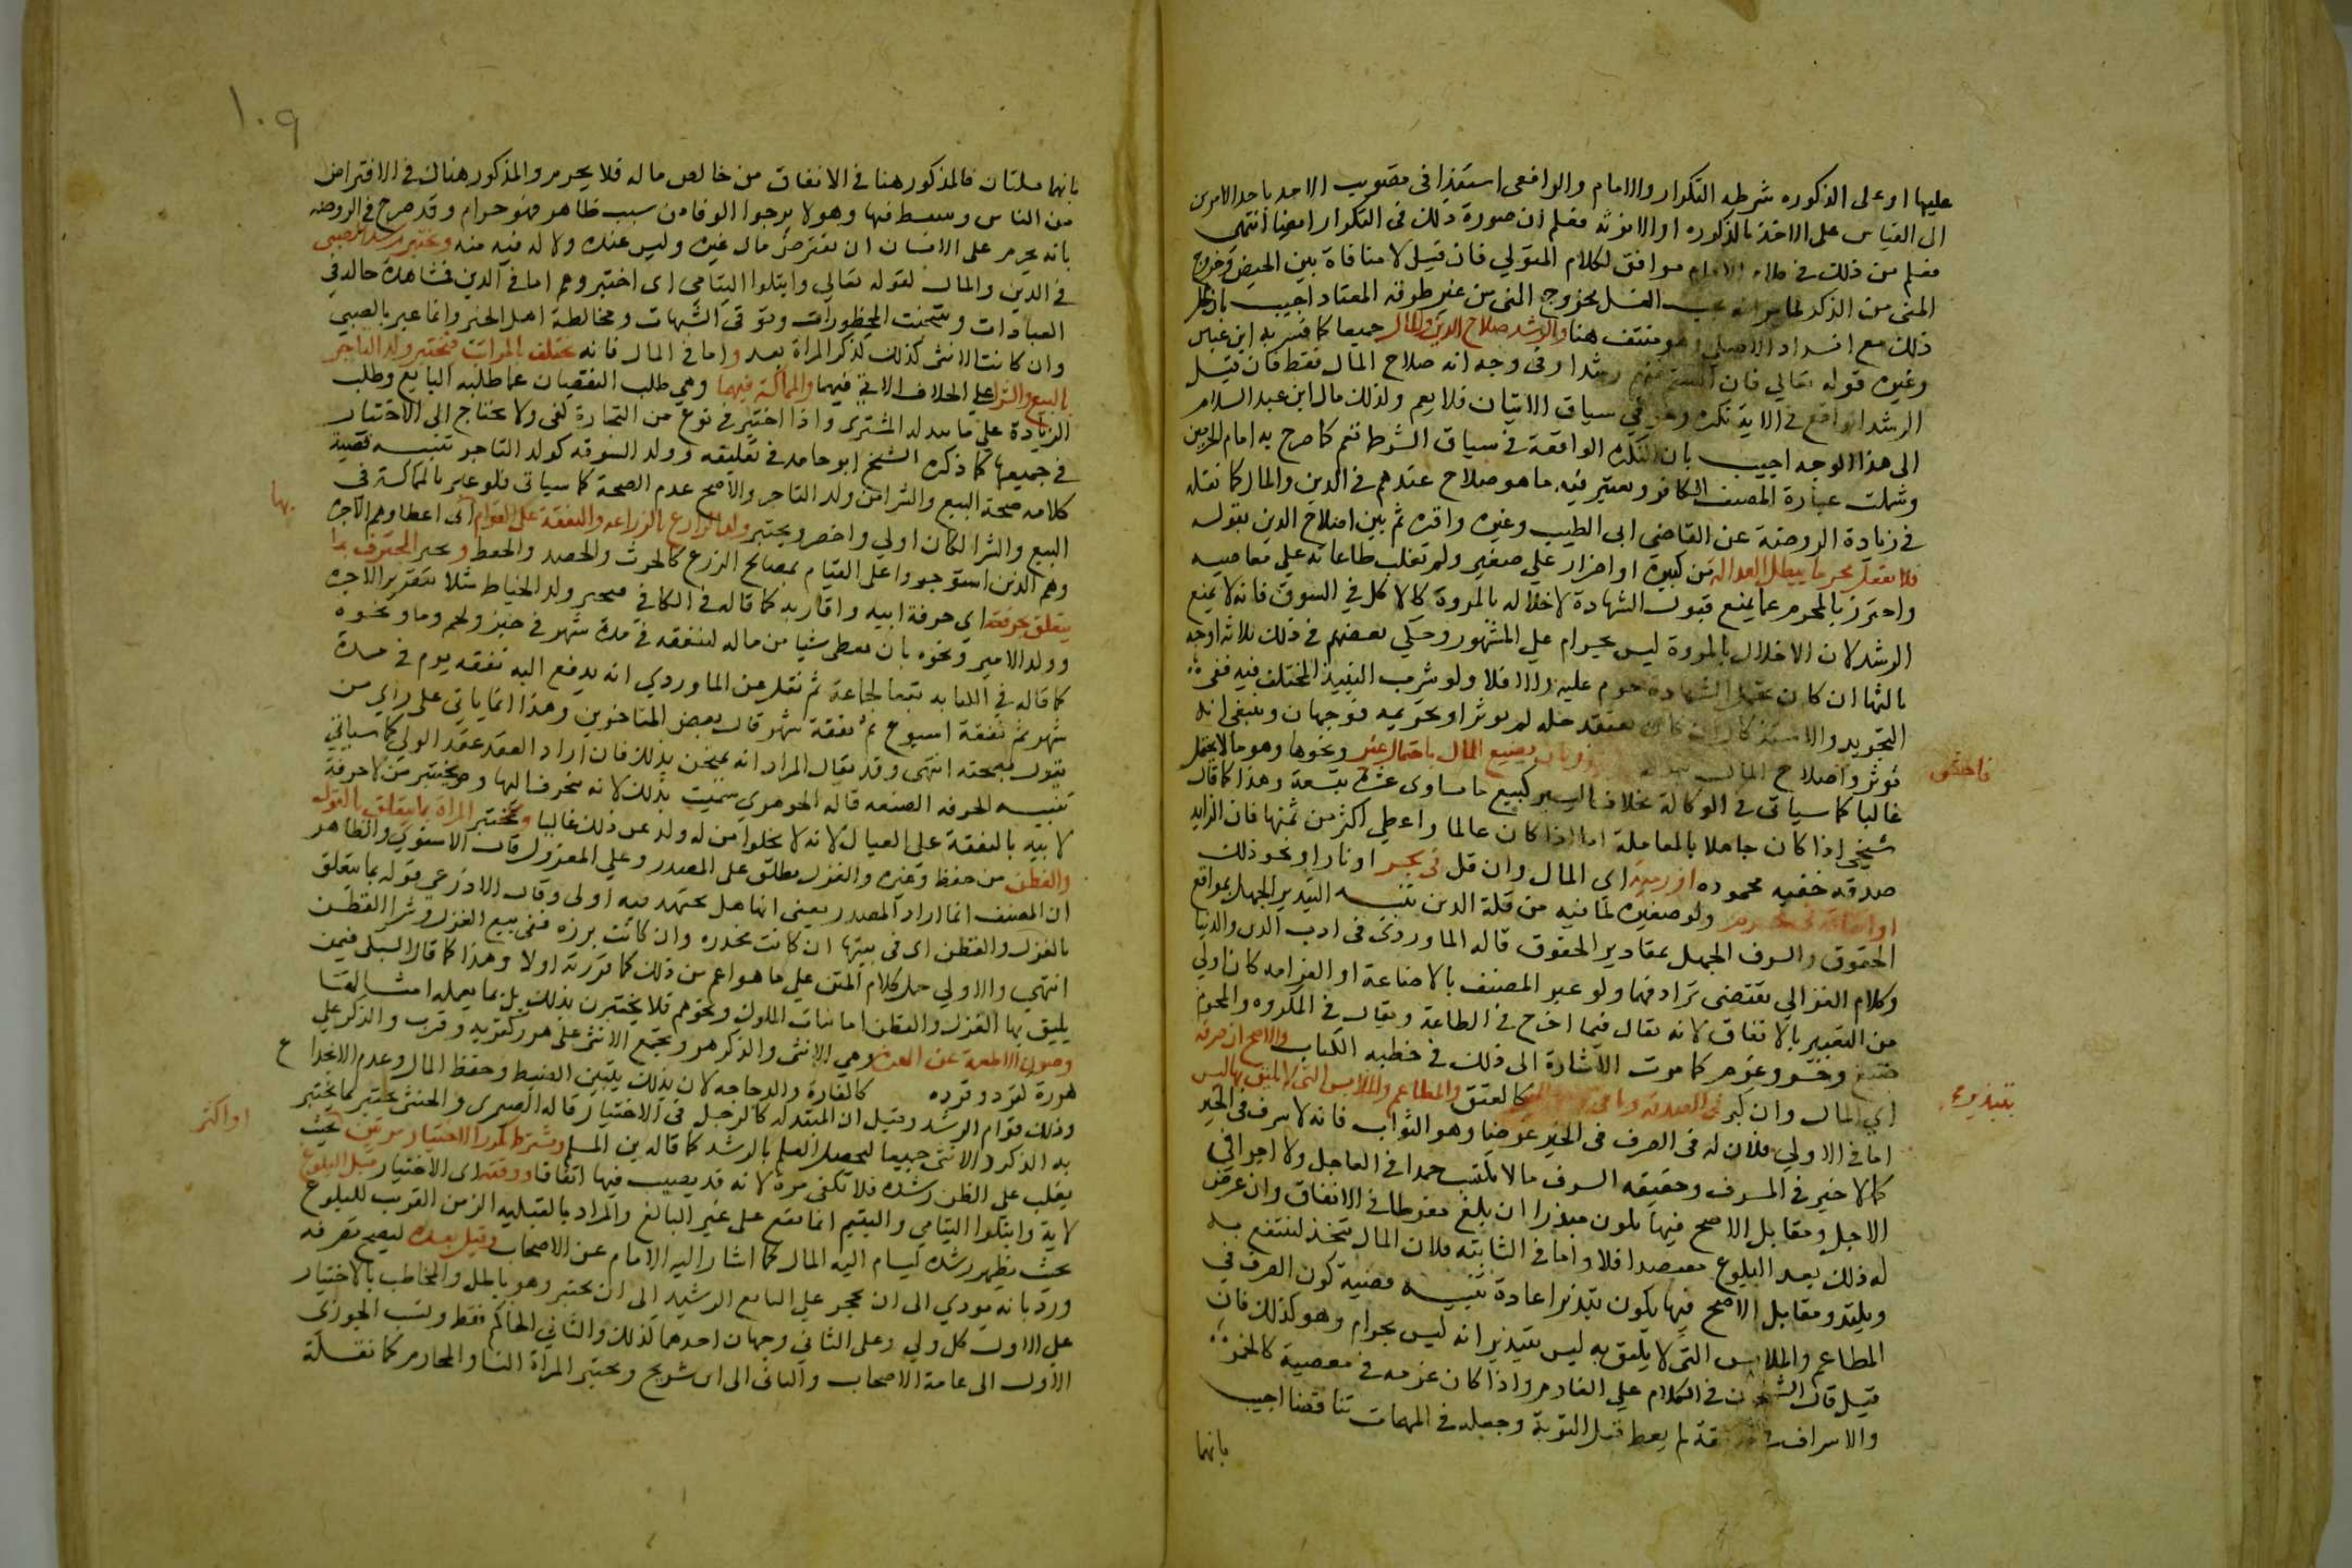 عليها او على الذكوره شرطه التكرار والامام والرافعى استنفذا فى مقبوب الاحد باحد الامرين
الى القياس على الاخذ بالذكوره او الانوثه فعلم ان صورة ذلك فى التكرار ايضا انتهى
فعلم من ذلك موافق لكلام المتولي فان قيل لا منافاة بين الحيض وخروج
المنى من الذكر لما مر انه يجب الغسل بخروج المنى من غير طرقه المعتاد اجيب بان
ذلك مع انسداد الاصلى وهو منتف هنا والرشد صلاح الدين والمال جميعا كما فسر به ابن عباس
وغيره قوله تعالي فان آنستم منهم رشدا وفى وجه انه صلاح المال فقط فان قيل
الرشد الواقع فى الاية نكره وهو في سياق الاثبات فلا يعم ولذلك مال ابن عبد السلام
الى هذا الوجه اجيب بان النكرة الواقعة فى سياق الشرط تعم كما صرح به امام الحرمين
وشملت عبارة المصنف الكافر ويعتبر فيه ما هو صلاح عندهم فى الدين والمال كما نقله
فى زيادة الروضة عن القاضى ابى الطيب وغيره واقره ثم بين اصلاح الدين بقوله
فلا يفعل محرما يبطل العدالة من كبيرة او اصرار على صغير ولم تغلب طاعاته علي معاصيه
واحترز بالمحرم عما يمنع قبول الشهادة لاخلاله بالمروة كالاكل في السوق فانه لا يمنع
الرشد لان الاخلال بالمروة ليس بحرام علي المشهور وحكي بعضهم فى ذلك ثلاثه اوجه
ثالثها ان كان تحمل الشهادة حرم عليه والا فلا ولو شرب النبيذ المختلف فيه ففى
التجريد والاستذكار ان كان يعتقد حله لم يوثر او تحريمه فوجهان وينبغى انه
يوثر واصلاح المال بان يضيع المال باحتمال غبن ونحوها وهو ما لا يحتمل
فاحش
غالبا كما سياتى فى الوكالة بخلاف اليسير كبيع ما يساوى عشرة بتسعة وهذا كما قال
شيخى اذا كان جاهلا بالمعاملة اما اذا كان عالما واعطي اكثر من ثمنها فان الزايد
صدقه خفيه محموده او رميه اى المال وان قل فى بحر او نار او نحو ذلك
او انفاقه فى محرم ولو صغيرة لما فيه من قلة الدين تنبيه التبذير الجهل بمواقع
الحقوق والسرف الجهل بمقادير الحقوق قاله الماوردى فى ادب الدين والدنيا
وكلام الغزالي يقتضى ترادفهما ولو عبر المصنف بالاضاعة او الغرامه كان اولي
من التعبير بالانفاق لانه يقال فيما اخرج فى الطاعة ويقال فى المكروه والمحرم
ضيع وخسر وغرم كما مرت الاشارة الى ذلك فى خطبه الكتاب والاصح ان صرفه
اي المال وان كثر فى الصدقة وباقى وجوه الخير كالعتق والمطاعم والملابس التى لا تليق به ليس
بتبذير
اما فى الاولي فلان له فى الصرف فى الخير غرضا وهو الثواب فانه لا سرف فى الخير
كما لا خير فى السرف وحقيقه السرف ما لا يكتسب حمدا فى العاجل ولا اجرا في
الاجل ومقابل الاصح فيها يكون مبذرا ان بلغ مفرطا فى الانفاق وان عرض
له ذلك بعد البلوغ مقتصدا فلا واما فى الثانيه فلان المال يتخذ لينتفع به
ويلتذ ومقابل الاصح فيها يكون تبذيرا عادة تنبيه قضية كون الصرف في
المطاعم والملابس التى لا يليق به ليس بتبذير انه ليس بحرام وهو كذلك فان
قيل قال الشيخان فى الكلام علي الغارم واذا كان غرمه فى معصية كالخمر
والاسراف فى النفقة لم يعط قبل التوبة وجعله فى المهمات تناقضا اجيب
بانها
١٠٩
بانها مسئلتان فالمذكور هنا فى الانفاق من خالص ماله فلا يحرم والمذكور هناك فى الاقتراض
من الناس وبسط فيها وهو لا يرجوا الوفا من سبب ظاهر فهو حرام وقد صرح فى الروضه
بانه يحرم على الانسان ان يقترض مال غيره وليس عنده ولا له فيه منه ويختبر رشد الصبى
فى الدين والمال لقوله تعالي وابتلوا اليتامي اى اختبروهم اما فى الدين فمشاهدة حاله في
العبادات وتجنب المحظورات وتوقى الشبهات ومخالطة اهل الخير وانما عبر بالصبي
وان كانت الانثى كذلك لذكر المراة بعد واما فى المال فانه يختلف بالمراتب فيختبر ولد التاجر
بالبيع والشرا علي الخلاف الاتي فيهما والمماكسة فيهما وهي طلب النقصان عما طلبه البايع وطلب
الزيادة علي ما يبذله المشترى واذا اختبر فى نوع من التجارة كفى ولا يحتاج الى الاختبار
فى جميعها كما ذكره الشيخ ابو حامد فى تعليقه وولد السوقه كولد التاجر تنبيه قضية
كلامه صحة البيع والشرا من ولد التاجر والاصح عدم الصحة كما سياتى فلو عبر بالمماكسة فى
البيع والشرا لكان اولي واخصر ويختبر ولد الزارع بالزراعه والنفقة على القوام اى اعطاوهم الاجره
بها
وهم الذين استوجروا على القيام بمصالح الزرع كالحرث والحصد والحفظ ويختبر المحترف بما
يتعلق بحرفته اي حرفة ابيه واقاربه كما قاله فى الكافي فيختبر ولد الخياط مثلا بتقدير الاجره
وولد الامير ونحوه بان يعطى شيا من ماله لينفقه فى مدة شهر فى خبز ولحم وماء ونحوه
كما قاله فى الكفايه تبعا لجماعة ثم نقل عن الماوردي انه يدفع اليه نفقه يوم فى مدة
شهر ثم نفقة اسبوع ثم نفقة شهر قال بعض المتاخرين وهذا انما ياتى على راي من
يقول بصحته انتهى وقد يقال المراد انه يمتحن بذلك فان اراد العقد عقد الولي كما سياتي
تنبيه الحرفه الصنعه قاله الجوهري سميت بذلك لانه ينحرف اليها ويختبر من لا حرفة
لابيه بالنفقة على العيال لانه لا يخلوا من له ولد عن ذلك غالبا وتختبر المراة بما يتعلق بالغزل
والقطن من حفظ وغيره والغزل يطلق على المصدر وعلي المغزول قال الاسنوي والظاهر
ان المصنف انما اراد المصدر يعنى انها هل تجتهد فيه اولى وقال الاذرعى قوله بما يتعلق
بالغزل والقطن اى فى بيتها ان كانت مخدره وان كانت برزه ففى بيع الغزل وشرا القطن
انتهي والاولي حمل كلام المتن علي ما هو اعم من ذلك كما قررته اولا وهذا كما قال السبكى فيمن
يليق بها الغزل والقطن اما بنات الملوك ونحوهم فلا يختبرن بذلك بل بما يعمله امثالهن
وصون الاطعمة عن الهرة وهي الانثى والذكر هر وتجمع الانثى على هرر كقربه وقرب والذكر علي
هررة كقرد وقرده كالفارة والدجاجه لان بذلك يتبين الضبط وحفظ المال وعدم الانخداع
وذلك قوام الرشد وقيل ان المبتذله كالرجل فى الاختبار قاله الصيمرى والخنثى يختبر بما يختبر
به الذكر والانثى جميعا ليحصل العلم بالرشد كما قاله ابن المسلم ويشترط تكرر الاختبار مرتين بحيث
او اكثر
يغلب على الظن رشده فلا تكفى مرة لانه قد يصيب فيها اتفاقا ووقته اى الاختيار قبل البلوغ
لاية وابتلوا اليتامي واليتيم انما يقع على غير البالغ والمراد بالقبليه الزمن القريب للبلوغ
بحيث يظهر رشده ليسلم اليه المال كما اشار اليه الامام عن الاصحاب وقيل بعده ليصح تصرفه
ورد بانه يودي الى ان يحجر علي البالغ الرشيد الى ان يختبر وهو باطل والمخاطب بالاختبار
علي الاول كل ولي وعلى الثاني وجهان احدهما كذلك والثاني الحاكم فقط ونسب الجوزى
الاول الى عامة الاصحاب والثانى الى ابن شريح ويختبر المراة النسا والمحارم كما نقله